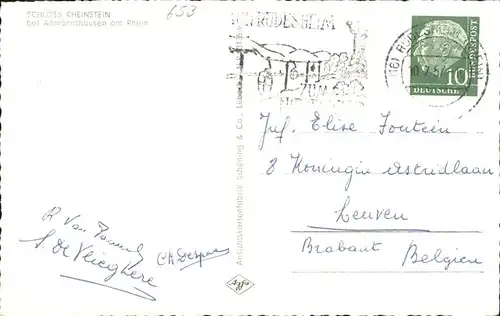 SCHLOSS RHEINSTEIN
bei Assmannshausen am Rhein
653
RÜDESHEIM
ZUM
(16) RÜDESHEIM
10.9.57
10
DEUTSCHE
BUNDESPOST
Ansichtskartenfabrik Schöning & Co., Lübeck
Juf. Elise Fontein
8 Koningin Astridlaan
Leuven
Brabant Belgien
R Van
S. De Vlieghere
Agfa